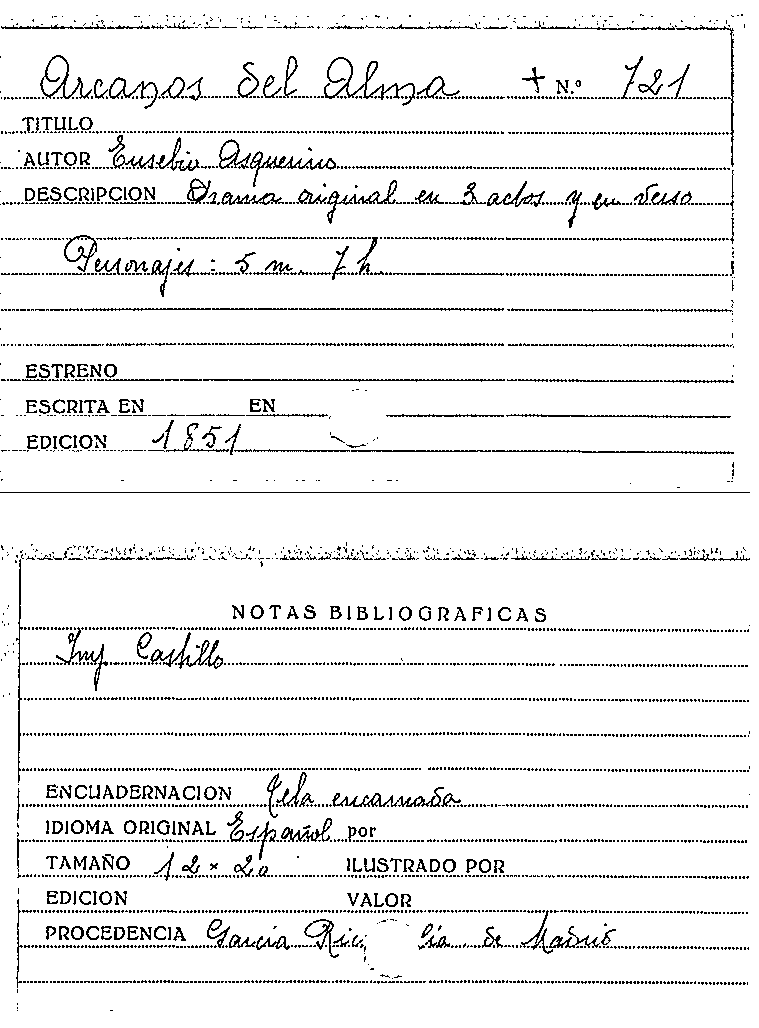 Arcanos del Alma + N.º 721
TITULO
AUTOR Eusebio Asquerino
DESCRIPCION Drama original en 3 actos y en verso
Personajes: 5 m. 7 h.
ESTRENO
ESCRITA EN EN
EDICION 1851
NOTAS BIBLIOGRAFICAS
Imp. Castillo
ENCUADERNACION Tela encarnada
IDIOMA ORIGINAL Español por
TAMAÑO 12 × 20 ILUSTRADO POR
EDICION VALOR
PROCEDENCIA García Rico Cía. de Madrid